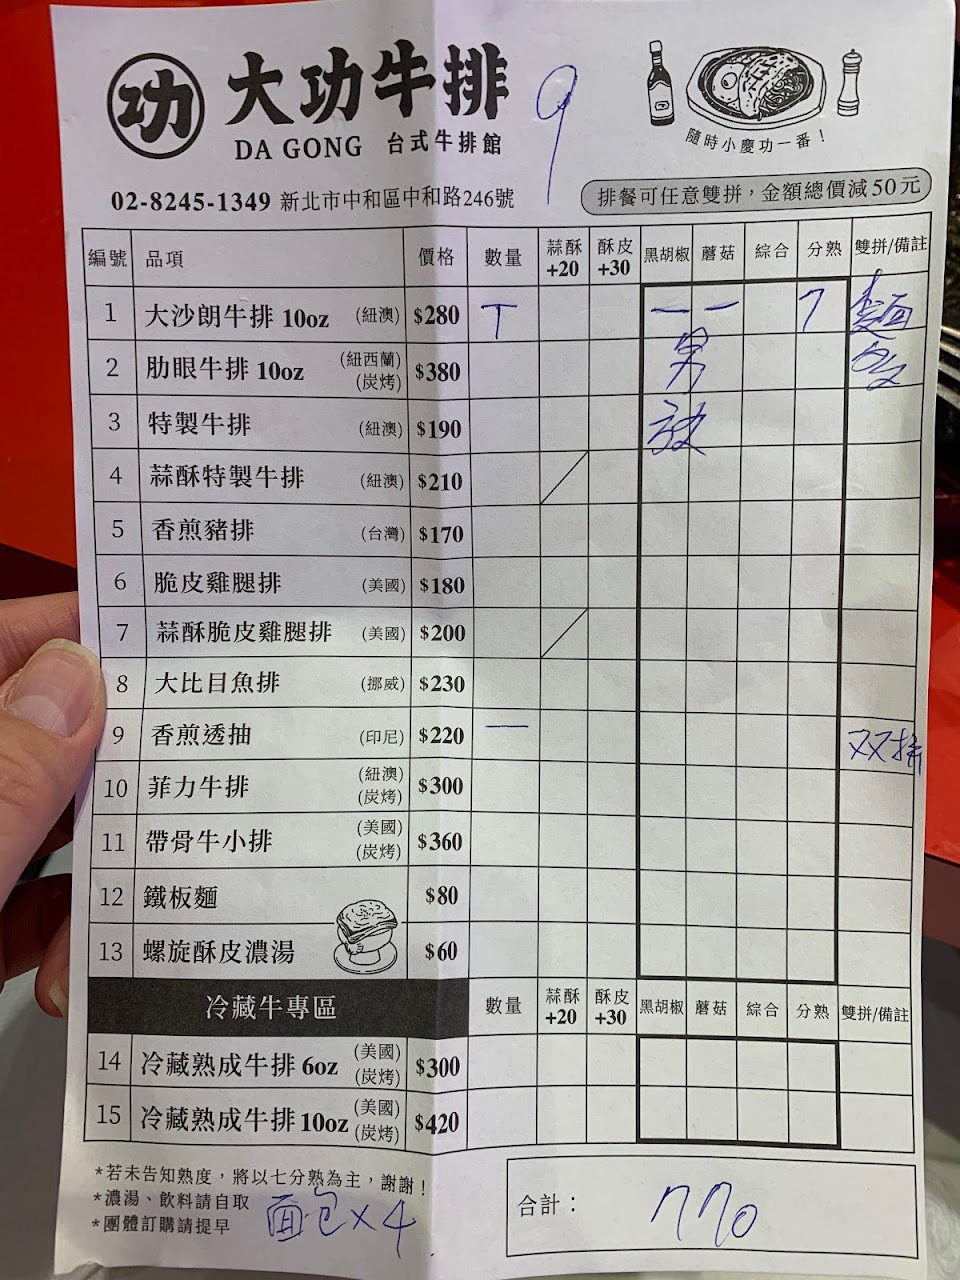 功 大功牛排 9
DA GONG 台式牛排館
隨時小慶功一番！
02-8245-1349 新北市中和區中和路246號
排餐可任意雙拼，金額總價減50元
編號 品項 價格 數量 蒜酥+20 酥皮+30 黑胡椒 蘑菇 綜合 分熟 雙拼/備註
1 大沙朗牛排 10oz (紐澳) $280 T 一 一 7 麵
2 肋眼牛排 10oz (紐西蘭) (炭烤) $380 男 多
3 特製牛排 (紐澳) $190 放
4 蒜酥特製牛排 (紐澳) $210
5 香煎豬排 (台灣) $170
6 脆皮雞腿排 (美國) $180
7 蒜酥脆皮雞腿排 (美國) $200
8 大比目魚排 (挪威) $230
9 香煎透抽 (印尼) $220 一 双拼
10 菲力牛排 (紐澳) (炭烤) $300
11 帶骨牛小排 (美國) (炭烤) $360
12 鐵板麵 $80
13 螺旋酥皮濃湯 $60
冷藏牛專區 數量 蒜酥+20 酥皮+30 黑胡椒 蘑菇 綜合 分熟 雙拼/備註
14 冷藏熟成牛排 6oz (美國) (炭烤) $300
15 冷藏熟成牛排 10oz (美國) (炭烤) $420
*若未告知熟度，將以七分熟為主，謝謝！
*濃湯、飲料請自取
*團體訂購請提早
面包×4
合計： 770